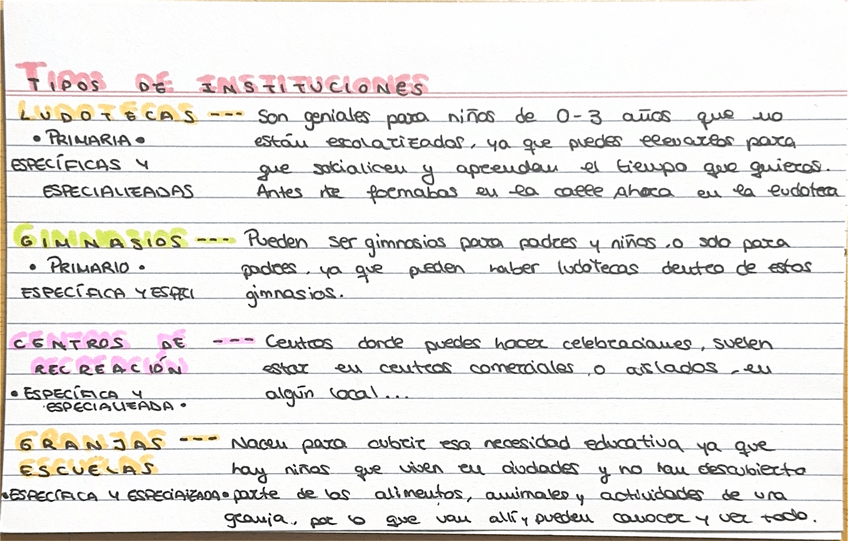 TIPOS DE INSTITUCIONES
LUDOTECAS --- Son geniales para niños de 0-3 años que no
• PRIMARIA • están escolarizados, ya que puedes llevarlos para
ESPECÍFICAS Y que socialicen y aprendan el tiempo que quieras.
ESPECIALIZADAS Antes te formabas en la calle Ahora en la ludoteca
GIMNASIOS --- Pueden ser gimnasios para padres y niños, o solo para
• PRIMARIO • padres, ya que pueden haber ludotecas dentro de estos
ESPECÍFICA Y ESPECI gimnasios.
CENTROS DE --- Centros donde puedes hacer celebraciones, suelen
RECREACIÓN estar en centros comerciales, o aislados, en
• ESPECÍFICA Y algún local...
ESPECIALIZADA •
GRANJAS --- Nacen para cubrir esa necesidad educativa ya que
ESCUELAS hay niños que viven en ciudades y no han descubierto
• ESPECÍFICA Y ESPECIALIZADA • parte de los alimentos, animales y actividades de una
granja, por lo que van allí y pueden conocer y ver todo.